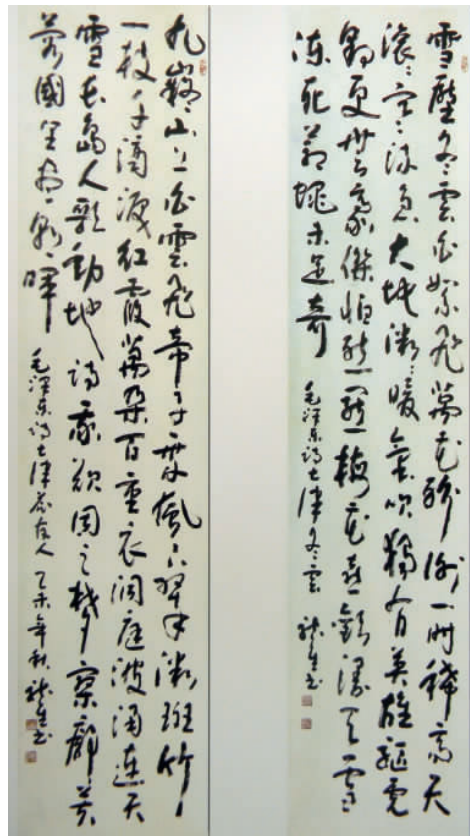 雪壓冬雲白絮飛萬花紛謝一時稀高天
滚滚寒流急大地微微暖氣吹獨有英雄驅虎
豹更無豪傑怕熊羆梅花喜歡漫天雪
凍死蒼蠅未足奇 毛澤東詩七律冬雲 生书
九嶷山上白雲飛帝子乘風下翠微斑竹
一枝千滴淚紅霞萬朵百重衣洞庭波涌連天
雪長島人歌動地詩我欲因之夢寥廓芙
蓉國里盡朝暉 毛澤东詩七律答友人 乙未年秋 生书